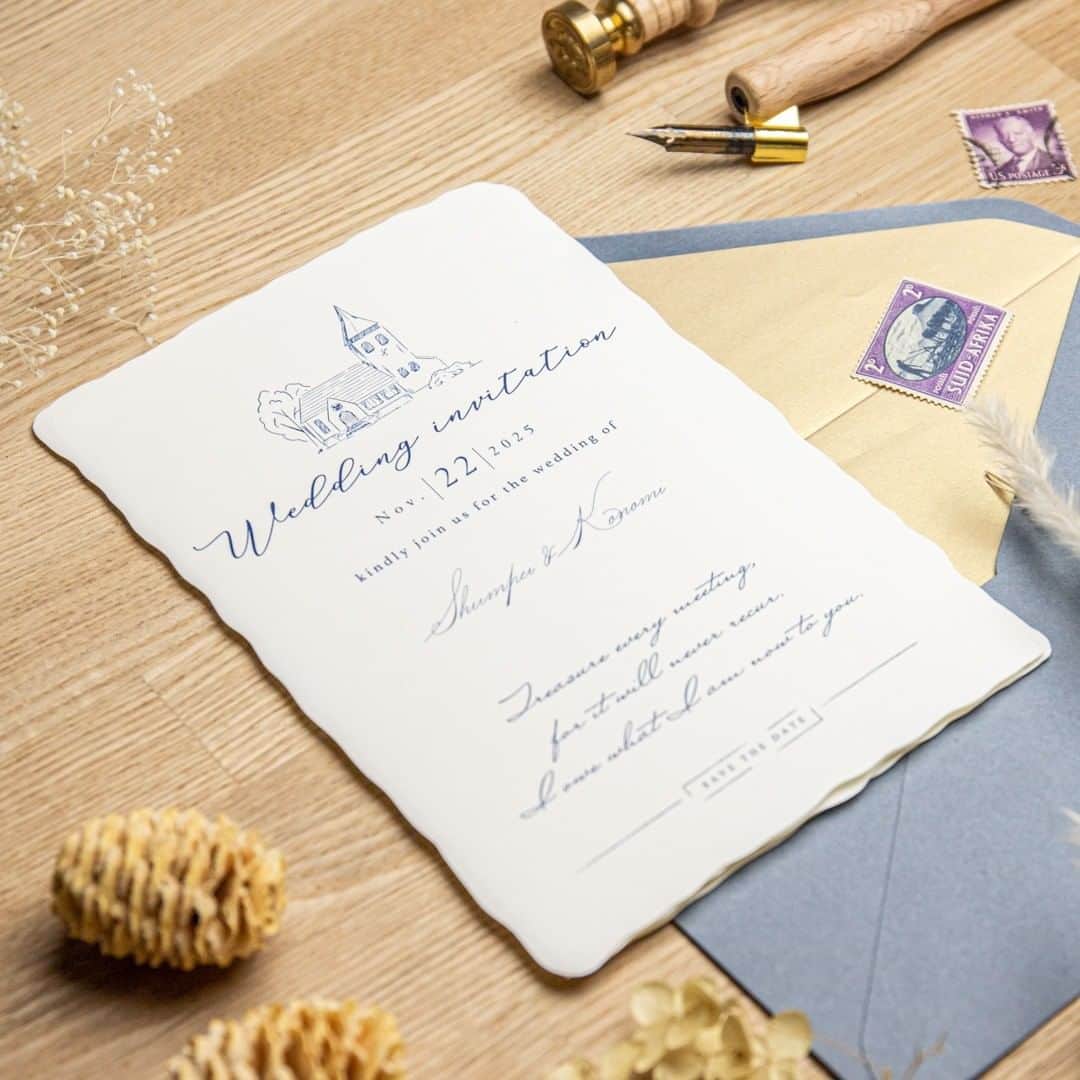 Wedding invitation
Nov. | 22 | 2025
kindly join us for the wedding of
Shumpei & Konomi
Treasure every meeting,
for it will never recur.
I owe what I am now to you.
SAVE THE DATE
ALFRED E. SMITH
US POSTAGE
2D
POSSEEL
POSTAGE
2D
SUID-AFRIKA